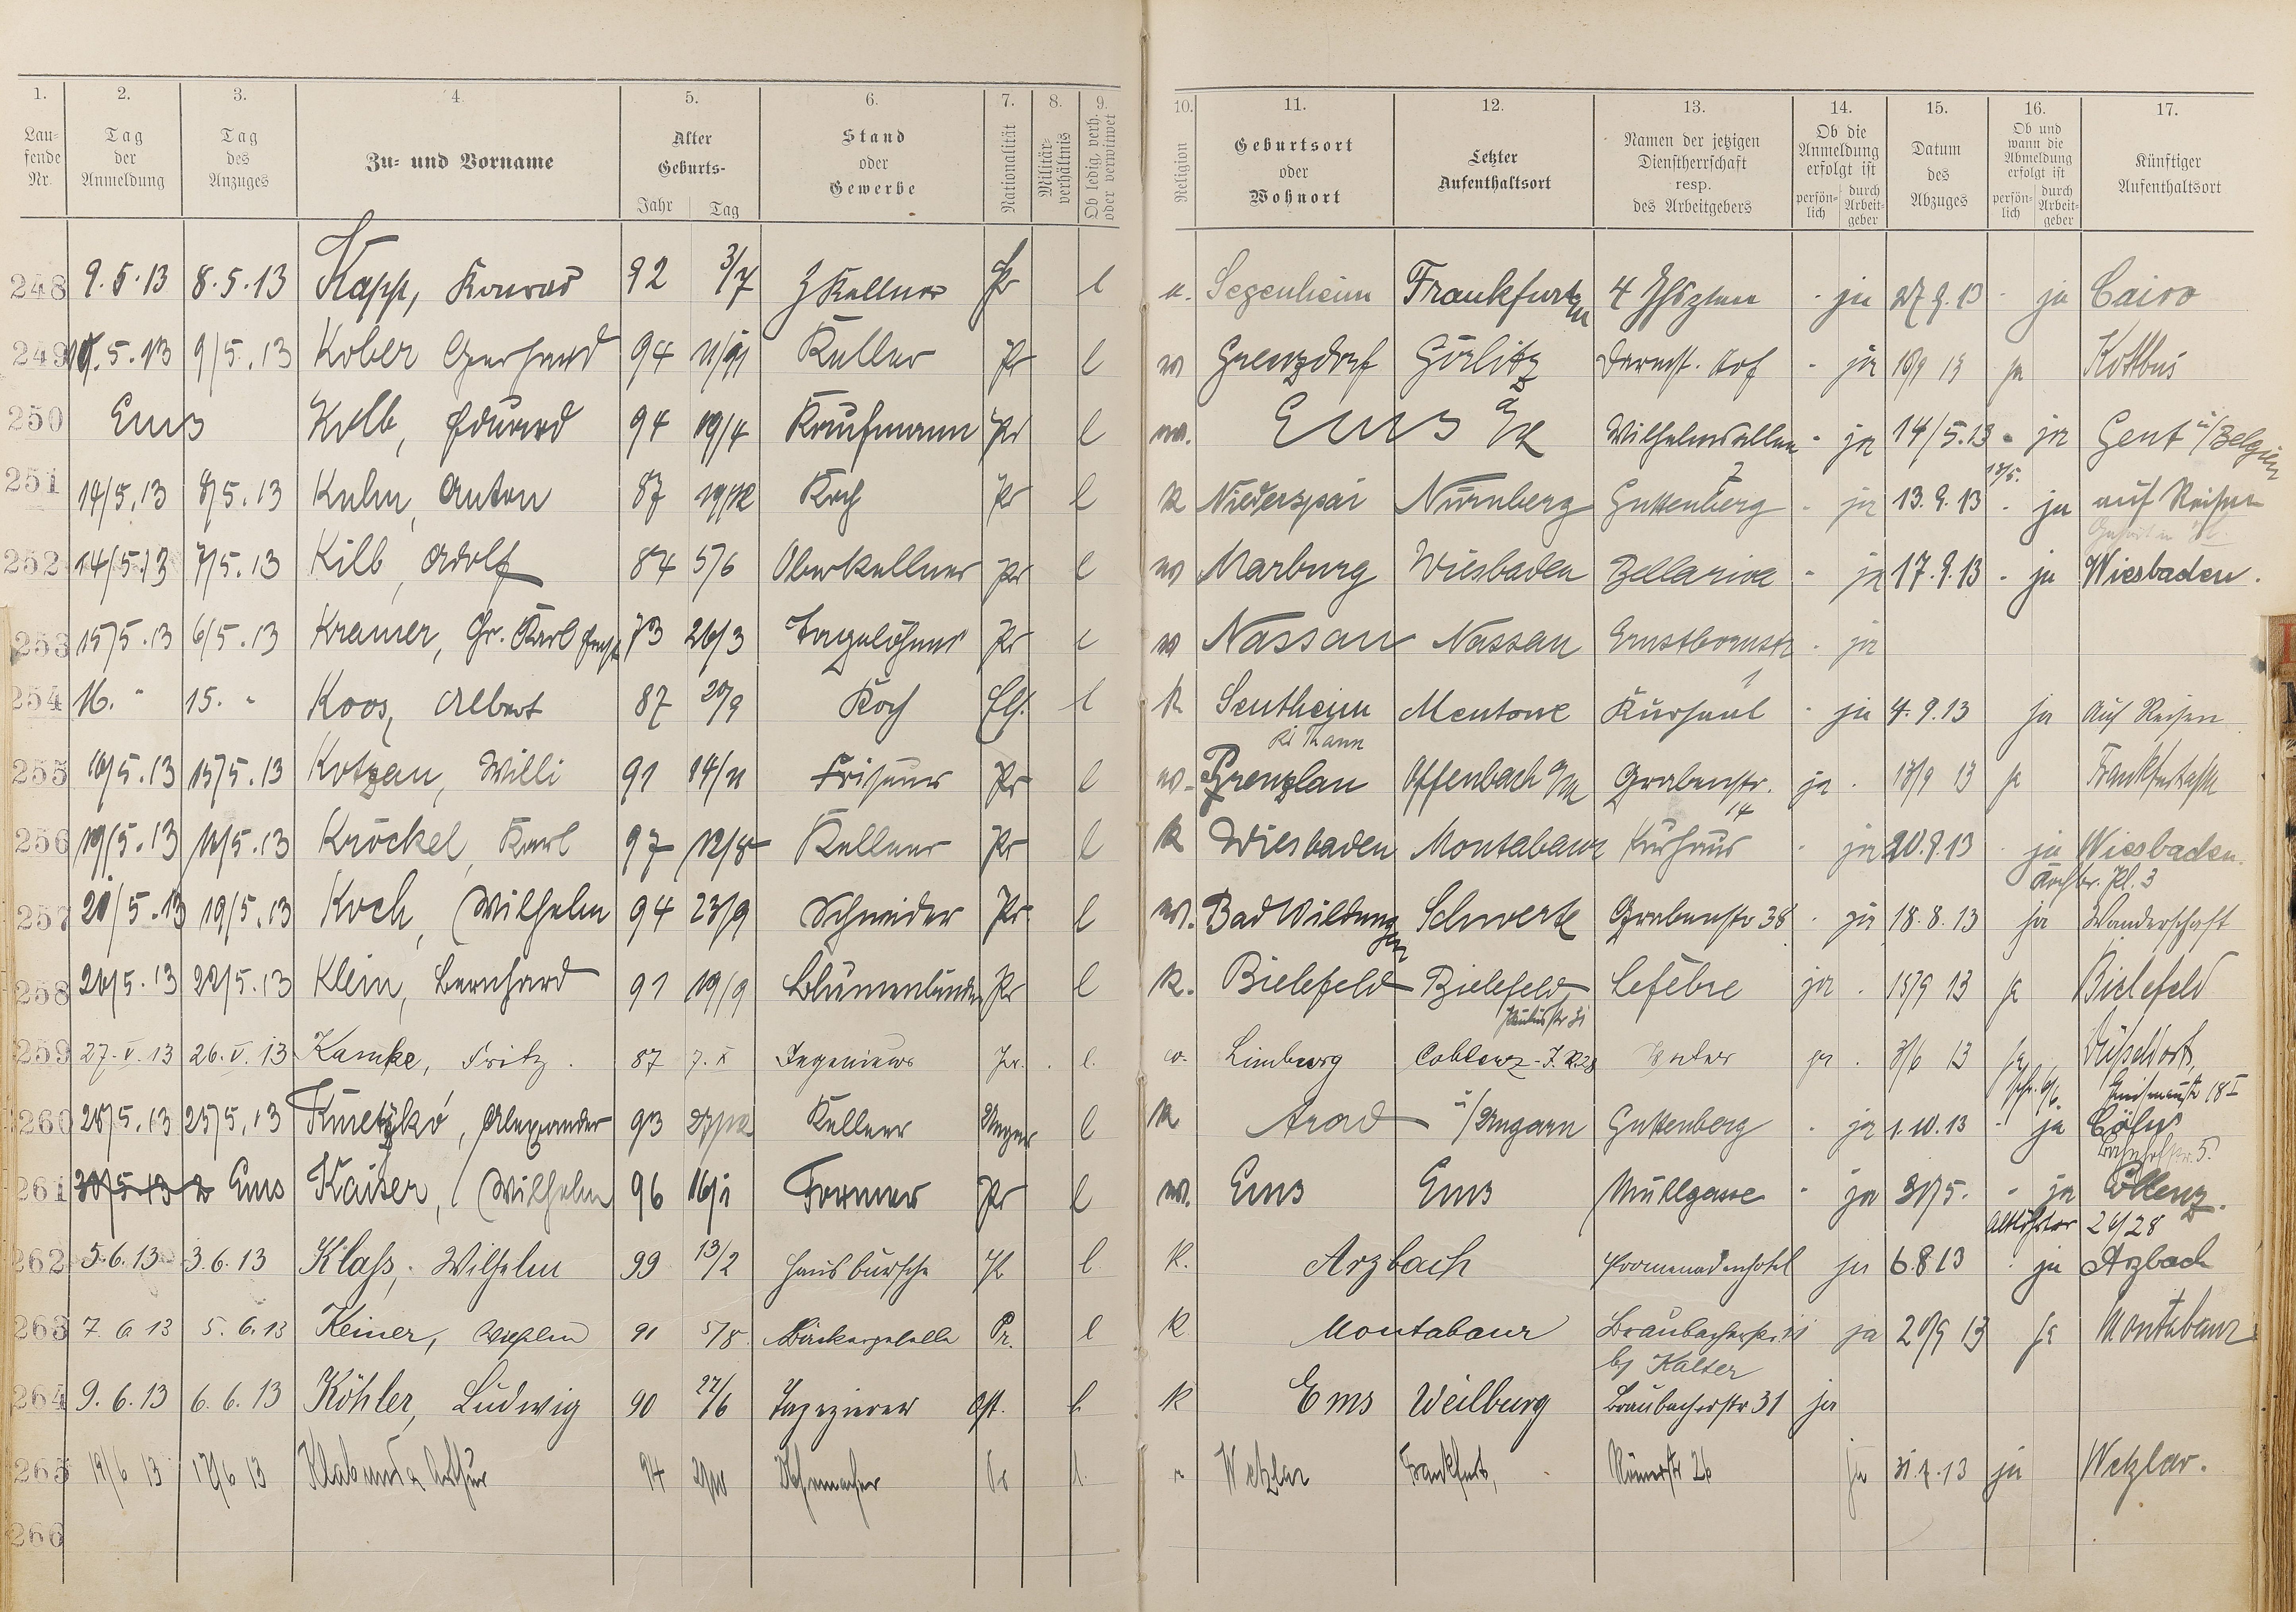 1. 2. 3. 4. 5. 6. 7. 8. 9. 10. 11. 12. 13. 14. 15. 16. 17.
Lau-
fende
Nr.
Tag
der
Anmeldung
Tag
des
Anzuges
Zu- und Vorname
Alter
Geburts-
Jahr Tag
Stand
oder
Gewerbe
Nationalität
Militär-
verhältnis
Ob ledig, verh.
oder verwitwet
Religion
Geburtsort
oder
Wohnort
Letzter
Aufenthaltsort
Namen der jetzigen
Dienstherrschaft
resp.
des Arbeitgebers
Ob die
Anmeldung
erfolgt ist
persön-
lich
durch
Arbeit-
geber
Datum
des
Abzuges
Ob und
wann die
Abmeldung
erfolgt ist
persön-
lich
durch
Arbeit-
geber
Künftiger
Aufenthaltsort
248 9.5.13 8.5.13 Kapp, Konrad 92 3/7 Kellner Pr l Frankfurt 4 - ja 27.9.13 - ja Cairo
249 9/5.13 Kober Gerhard 94 Kellner Pr l Görlitz Darmst. Hof - ja 13 ja Kottbus
250 Ems Kolb, Eduard 94 19/4 Kaufmann Pr l Ems - ja 14/5.13 - ja Gent i/Belgien
251 14/5.13 8/5.13 Kuhn, Anton 87 Koch Pr l k Niederspai Nürnberg Guttenberg - ja 13.9.13 - ja auf Reisen
252 14/5.13 7/5.13 Kilb, Adolf 87 5/6 Oberkellner Pr l Marburg Wiesbaden Bellariva - ja 17.9.13 - ja Wiesbaden.
253 15/5.13 6/5.13 Kramer, Karl 73 26/3 Tagelöhner Pr Nassau Nassau - ja
254 16. " 15. " Koos, Albert 87 20/9 Koch Els. l k Sentheim Mentone Kursaal - ja 4.9.13 ja Auf Reisen
Kr Thann
255 16/5.13 15/5.13 Kotzan, Willi 91 14/11 Friseur Pr l Prenzlau Offenbach a/M Grabenstr. 14 ja - 13 ja
256 19/5.13 Kröckel, Karl 97 12/8 Kellner Pr l k Wiesbaden Montabaur Kurhaus - ja 20.9.13 - ja Wiesbaden.
257 20/5.13 19/5.13 Koch, Wilhelm 94 23/9 Schneider Pr l Bad Wildungen Schwerte Grabenstr 38 - ja 18.8.13 ja Wanderschaft
258 26/5.13 Klein, Bernhard 91 19/9 Pr l k. Bielefeld Bielefeld Lefèbre ja - 15/9 13 ja Bielefeld
259 27.V.13 26.V.13 Kamke, Fritz. 87 7.X Ingenieur Pr. l. Limburg Coblenz - I.R.28 ja - 13 ja Düsseldorf,
260 28/5.13 25/5.13 Kmetzkó, Alexander 93 Kellner Unger l k Arad i/Ungarn Guttenberg - ja 1.10.13 - ja Cöln
Bahnhofstr. 5.
261 Ems Kaiser, Wilhelm 96 16/1 Former Pr l Ems Ems Mühlgasse - ja 31/5. - ja Coblenz.
Altlöhrtor 26/28
262 5.6.13 3.6.13 Klaß, Wilhelm 99 13/2 Hausbursche Pr l k. Arzbach Promenadenhotel ja 6.8.13 - ja Arzbach
263 7.6.13 5.6.13 Keiner, 91 5/8 Bäckergeselle Pr. l k Montabaur Braubacherstr. ja 13 ja Montabaur
264 9.6.13 6.6.13 Köhler, Ludwig 90 Tapezierer k Ems Weilburg Braubacherstr 31 ja
bei Kalter
265 19/6 13 13 Klabunda Arthur 94 Pr l. Wetzlar Frankfurt, Römerstr 26 ja 31.7.13 ja Wetzlar.
266